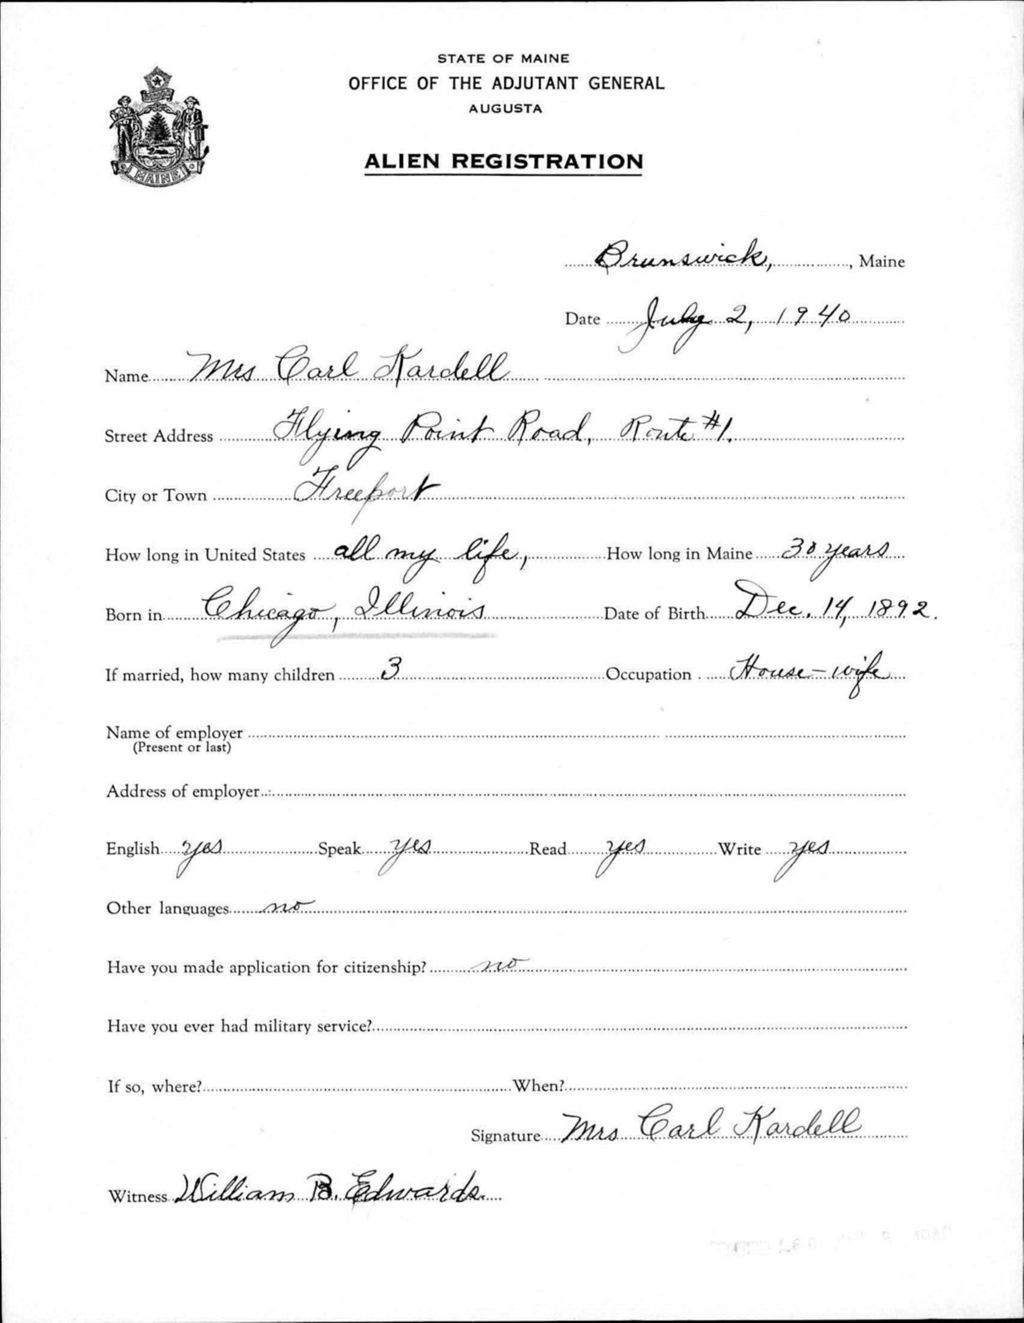 STATE OF MAINE
OFFICE OF THE ADJUTANT GENERAL
AUGUSTA
ALIEN REGISTRATION
MAINE
Brunswick, , Maine
Date July 2, 1940
Name Mrs Carl Kardell
Street Address Flying Point Road, Route #1.
City or Town Freeport
How long in United States all my life, How long in Maine 30 years
Born in Chicago, Illinois Date of Birth Dec. 14, 1892.
If married, how many children 3 Occupation House-wife
Name of employer
(Present or last)
Address of employer
English yes Speak yes Read yes Write yes
Other languages no
Have you made application for citizenship? no
Have you ever had military service?
If so, where? When?
Signature Mrs Carl Kardell
Witness William B. Edwards.